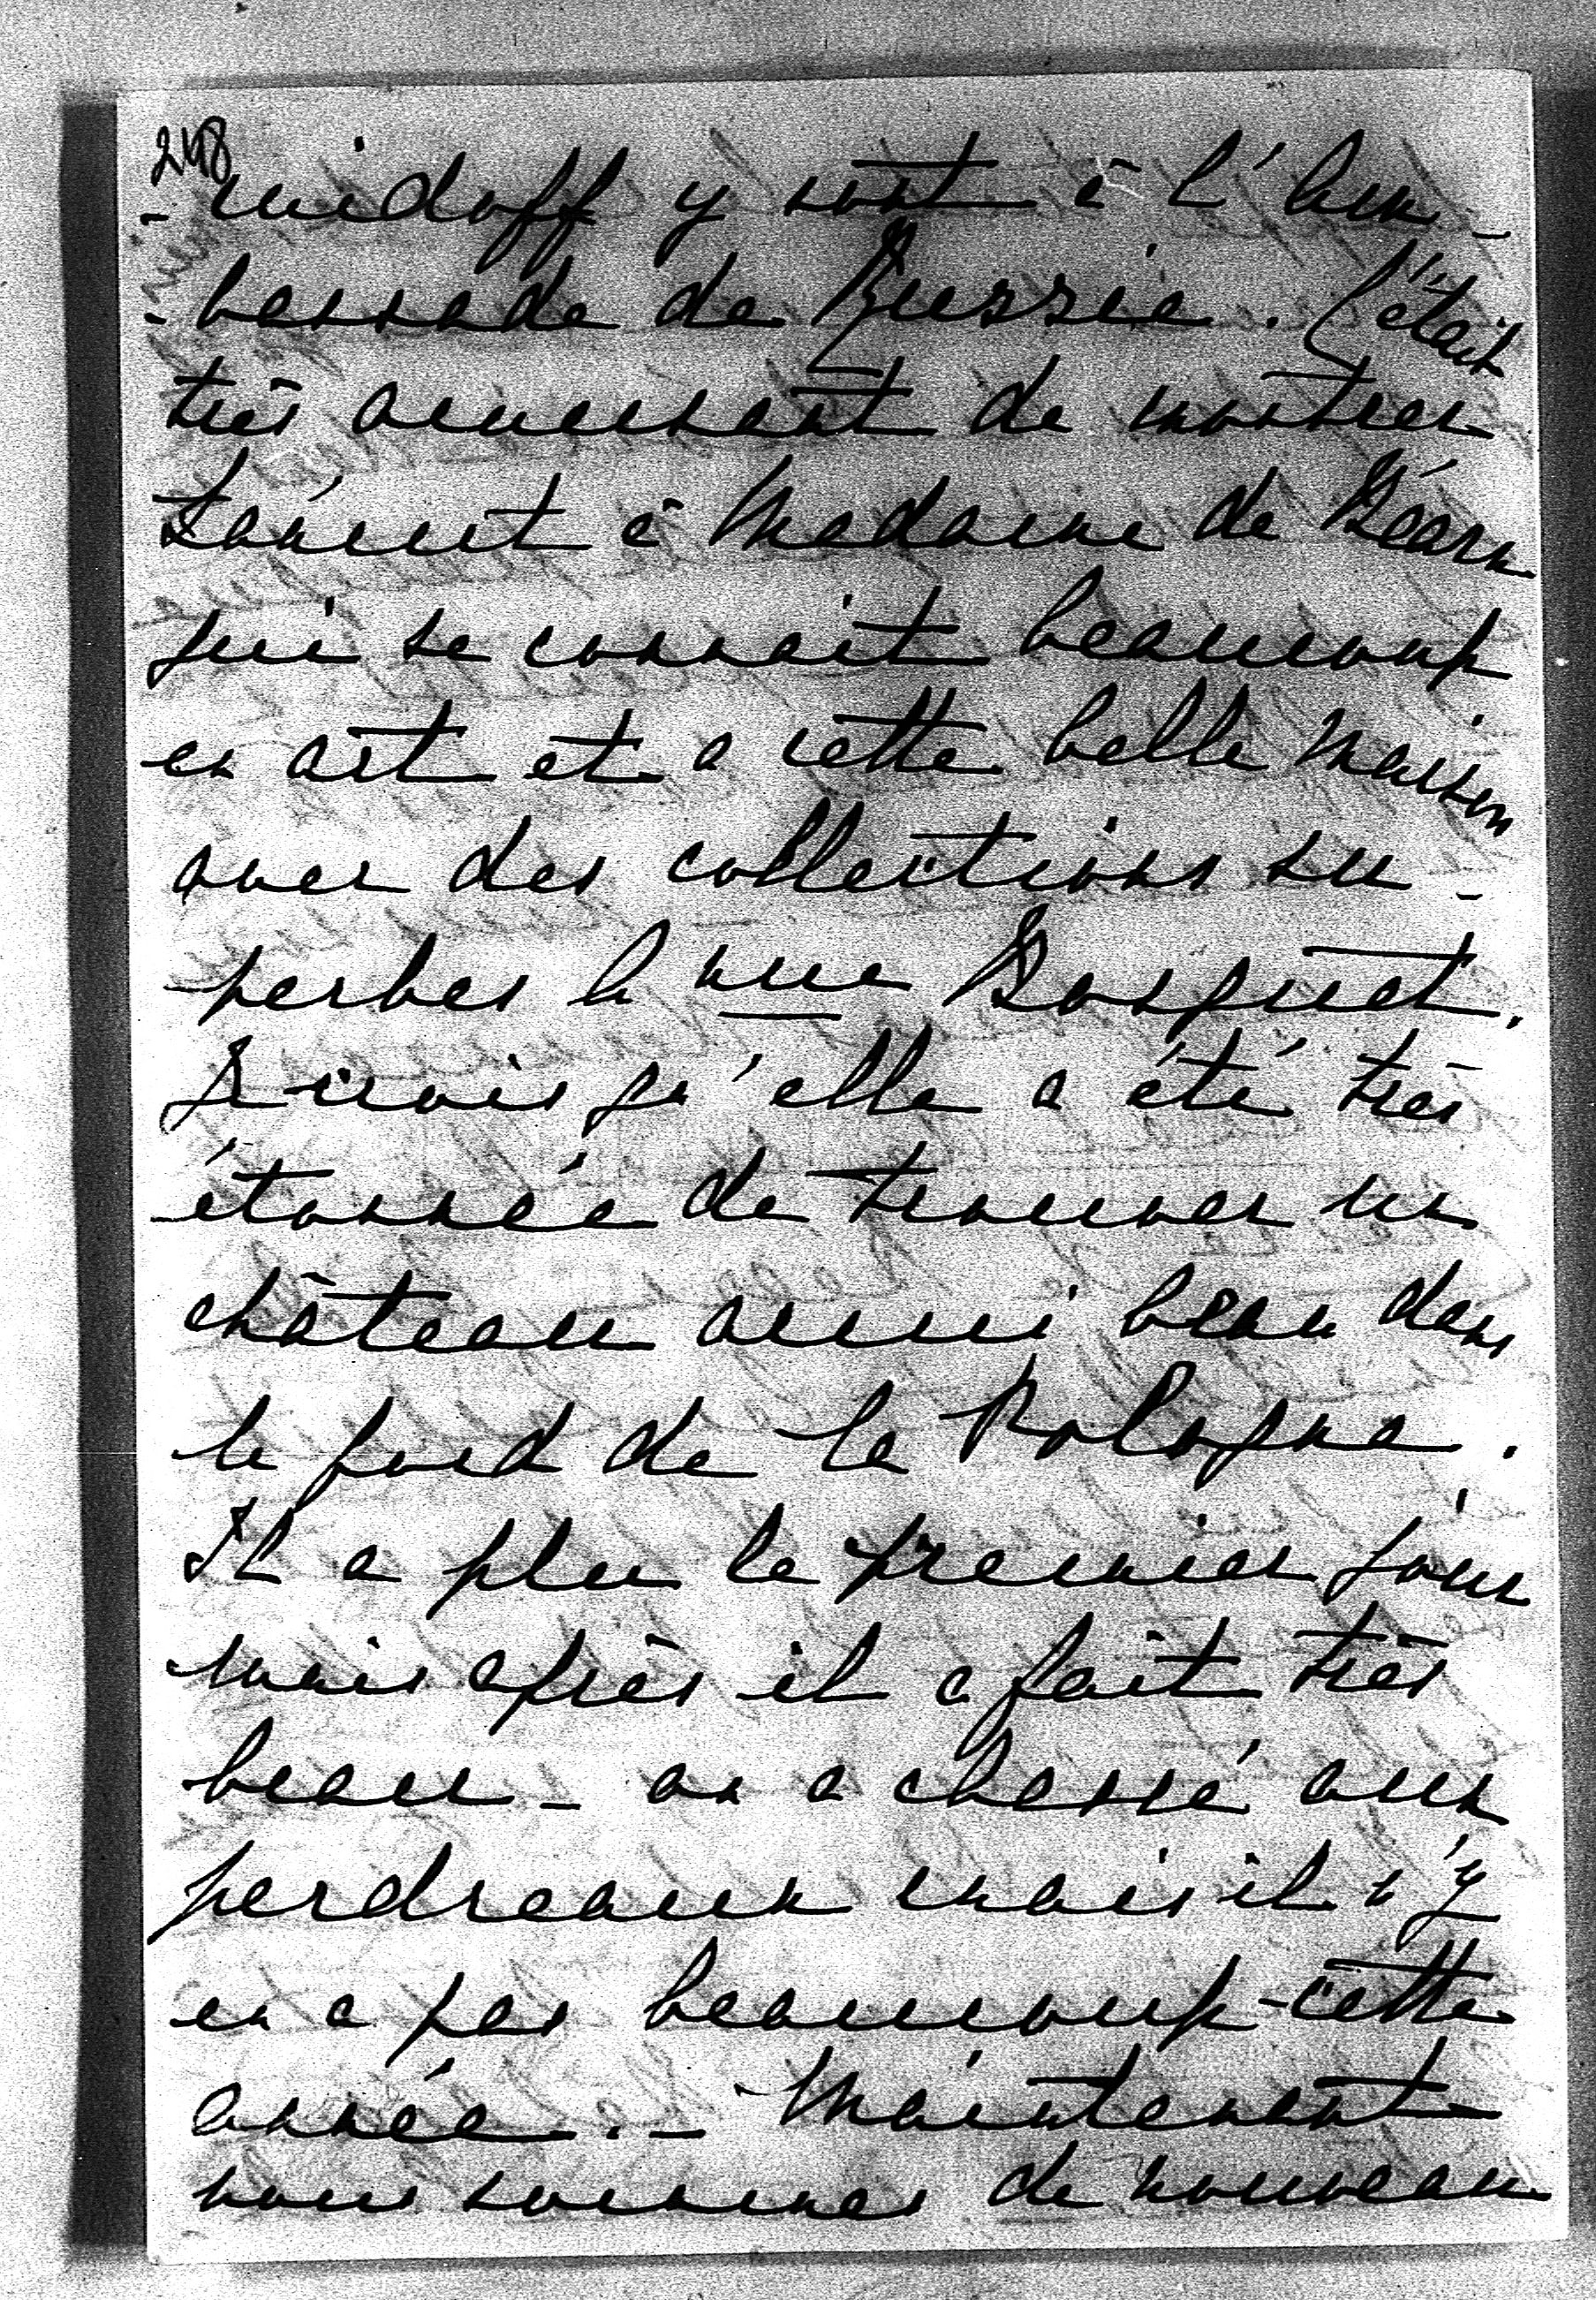 248
-midoff y sont à l'Am-
-bassade de Russie. C'était
très amusant de montrer
Łańcut à Madame de Béarn
qui se connait beaucoup
en art et a cette belle maison
avec des collections su-
perbes la rue Bosquet.
Je crois qu'elle a été très
étonnée de trouver un
château aussi beau dans
le fond de la Pologne.
Il a plu le premier jour
mais après il a fait très
beau - on a chassé aux
perdreaux mais il n'y
en a pas beaucoup cette
année. - Maintenant
nous sommes de nouveau